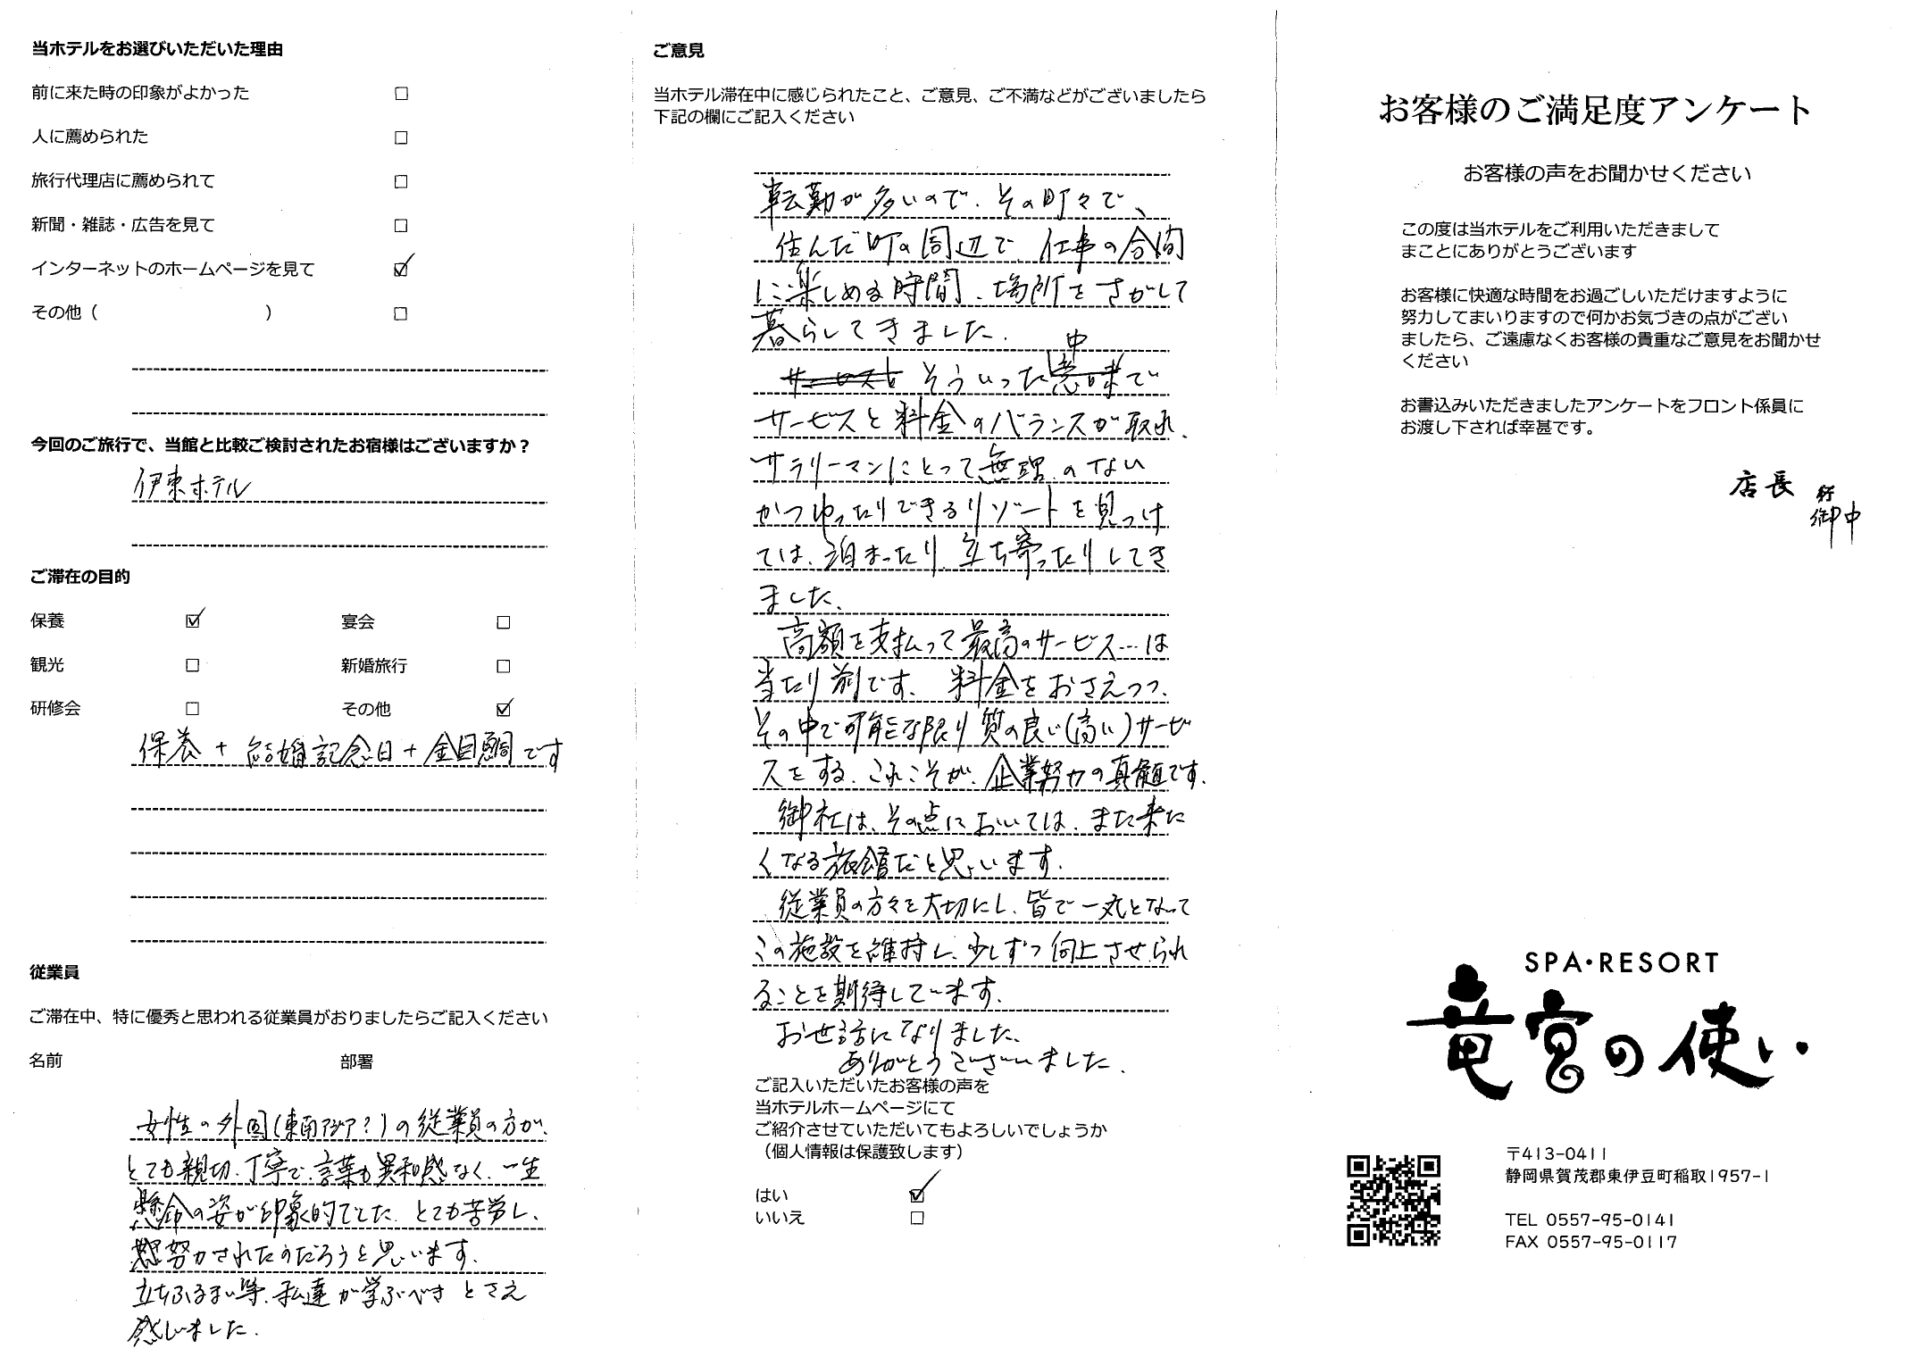 当ホテルをお選びいただいた理由
前に来た時の印象がよかった □
人に薦められた □
旅行代理店に薦められて □
新聞・雑誌・広告を見て □
インターネットのホームページを見て ☑
その他（ ） □
今回のご旅行で、当館と比較ご検討されたお宿様はございますか？
伊東ホテル
ご滞在の目的
保養 ☑ 宴会 □
観光 □ 新婚旅行 □
研修会 □ その他 ☑
保養＋結婚記念日＋金目鯛です
従業員
ご滞在中、特に優秀と思われる従業員がおりましたらご記入ください
名前 部署
女性の外国(東南アジア？)の従業員の方が、
とても親切、丁寧で、言葉も異和感なく、一生
懸命の姿が印象的でした。とても苦労し、
努力されたのだろうと思います。
立ちふるまい等、私達が学ぶべきとさえ
感じました。
ご意見
当ホテル滞在中に感じられたこと、ご意見、ご不満などがございましたら
下記の欄にご記入ください
転勤が多いので、その町々で、
住んだ町の周辺で、仕事の合間
に楽しめる時間、場所をさがして
暮らしてきました。
そういった中で
サービスと料金のバランスが取れ、
サラリーマンにとって無理のない
かつゆったりできるリゾートを見つけ
ては、泊まったり、立ち寄ったりしてき
ました。
高額を支払って最高のサービス…は
当たり前です。料金をおさえつつ、
その中で可能な限り質の良い(高い)サービ
スをする。これこそが、企業努力の真髄です。
御社は、その点においては、また来た
くなる旅館だと思います。
従業員の方々を大切にし、皆で一丸となって
この施設を維持し、少しずつ向上させられ
ることを期待しています。
お世話になりました。
ありがとうございました。
ご記入いただいたお客様の声を
当ホテルホームページにて
ご紹介させていただいてもよろしいでしょうか
（個人情報は保護致します）
はい ☑
いいえ □
お客様のご満足度アンケート
お客様の声をお聞かせください
この度は当ホテルをご利用いただきまして
まことにありがとうございます
お客様に快適な時間をお過ごしいただけますように
努力してまいりますので何かお気づきの点がござい
ましたら、ご遠慮なくお客様の貴重なご意見をお聞かせ
ください
お書込みいただきましたアンケートをフロント係員に
お渡し下されば幸甚です。
店長 行
御中
SPA・RESORT
竜宮の使い
〒413-0411
静岡県賀茂郡東伊豆町稲取1957-1
TEL 0557-95-0141
FAX 0557-95-0117